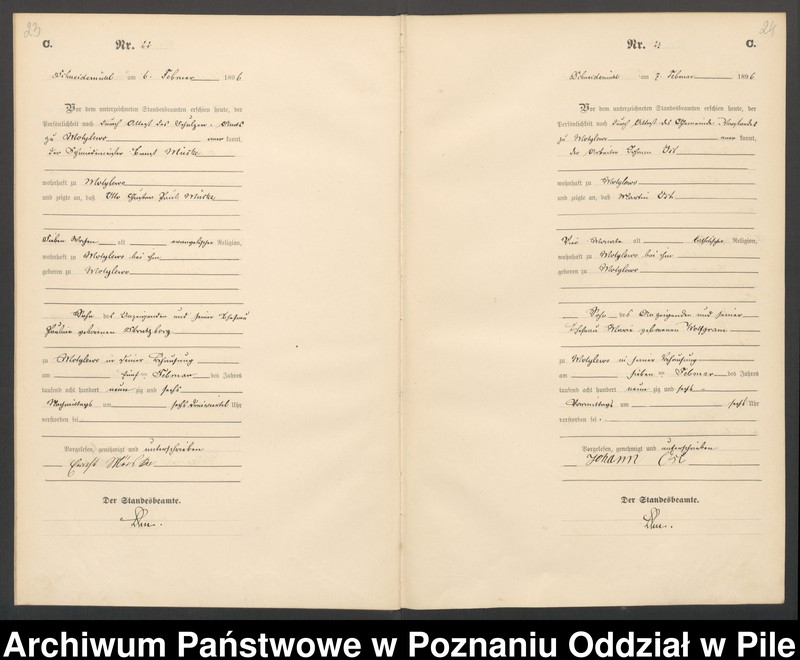 23
C.
Nr.
Schneidemühl am 6. Februar 1896
Vor dem unterzeichneten Standesbeamten erschien heute, der
Persönlichkeit nach durch Attest des Schulzen-Amts
zu Motylewo kannt,
der Schmiedemeister Ernst Müske
wohnhaft zu Motylewo
und zeigte an, daß Otto Gustav Paul Müske
sieben Wochen alt evangelischer Religion,
wohnhaft zu Motylewo bei ihm
geboren zu Motylewo
Sohn des Anzeigenden und seiner Ehefrau
Pauline geborenen
zu Motylewo in seiner Behausung
am fünften Februar des Jahres
tausend acht hundert neunzig und sechs
Nachmittags um sechs dreiviertel Uhr
verstorben sei
Vorgelesen, genehmigt und unterschrieben
Ernst Müske
Der Standesbeamte.
24
Nr.
C.
Schneidemühl am 7. Februar 1896
Vor dem unterzeichneten Standesbeamten erschien heute, der
Persönlichkeit nach durch Attest des Gemeinde-Vorstandes
zu Motylewo kannt,
der Arbeiter Johann Ost
wohnhaft zu Motylewo
und zeigte an, daß Martin Ost
Monate alt katholischer Religion,
wohnhaft zu Motylewo bei ihm
geboren zu Motylewo
Sohn des Anzeigenden und seiner
Ehefrau Marie geborenen Wolfgram
zu Motylewo in seiner Behausung
am sieben ten Februar des Jahres
tausend acht hundert neunzig und sechs
Vormittags um sechs Uhr
verstorben sei.
Vorgelesen, genehmigt und unterschrieben
Johann Ost
Der Standesbeamte.
Archiwum Państwowe w Poznaniu Oddział w Pile